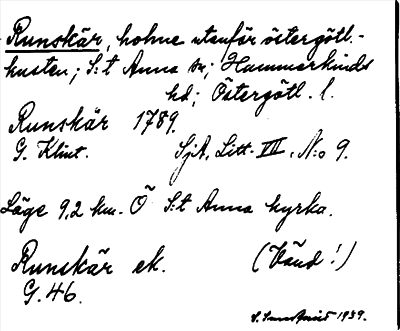 Runskär, holme utanför östergötl.-
kusten; S:t Anna sn; Hammarkinds
hd; Östergötl. l.
Runskär 1789.
G. Klint. Sjk, Litt. VII, N:o 9.
Läge 9,2 km. Ö S:t Anna kyrka.
Runskär ek. (Vänd!)
G.46.
1939.